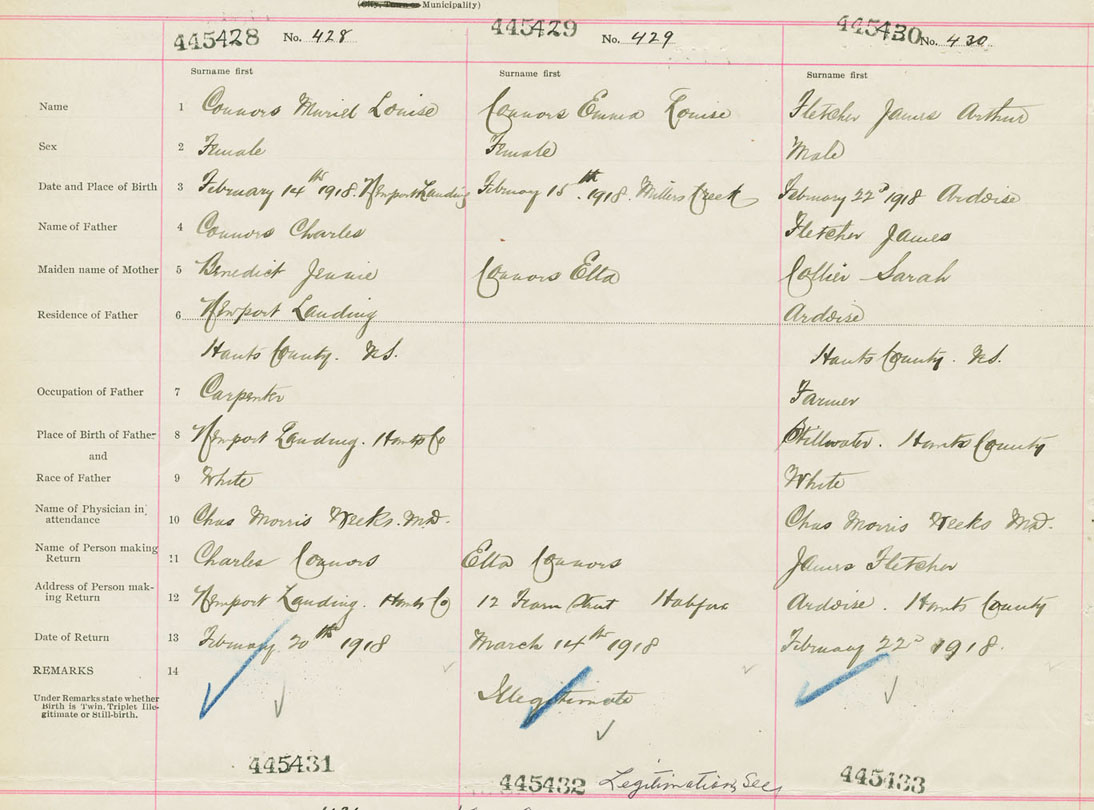 (City, Town or Municipality)
445428 No. 428
445429 No. 429
445430 No. 430
Surname first
Surname first
Surname first
Name 1 Connors Muriel Louise
Connors Emma Louise
Fletcher James Arthur
Sex 2 Female
Female
Male
Date and Place of Birth 3 February 14th 1918. Newport Landing
February 15th. 1918. Millers Creek
February 22d 1918 Ardoise
Name of Father 4 Connors Charles
Fletcher James
Maiden name of Mother 5 Benedict Jennie
Connors Ella
Collier Sarah
Residence of Father 6 Newport Landing
Ardoise
Hants County. N.S.
Hants County. N.S.
Occupation of Father 7 Carpenter
Farmer
Place of Birth of Father 8 Newport Landing. Hants Co
Stillwater. Hants County
and
Race of Father 9 White
White
Name of Physician in attendance 10 Chas Morris Weeks. M.D.
Chas Morris Weeks M.D.
Name of Person making Return 11 Charles Connors
Ella Connors
James Fletcher
Address of Person making Return 12 Newport Landing. Hants Co
12 Street Halifax
Ardoise. Hants County
Date of Return 13 February 20th 1918
March 14th 1918
February 22d 1918.
REMARKS 14
Under Remarks state whether
Birth is Twin, Triplet Ille-
gitimate or Still-birth.
Illegitimate
445431
445432 Legitimation, See
445433